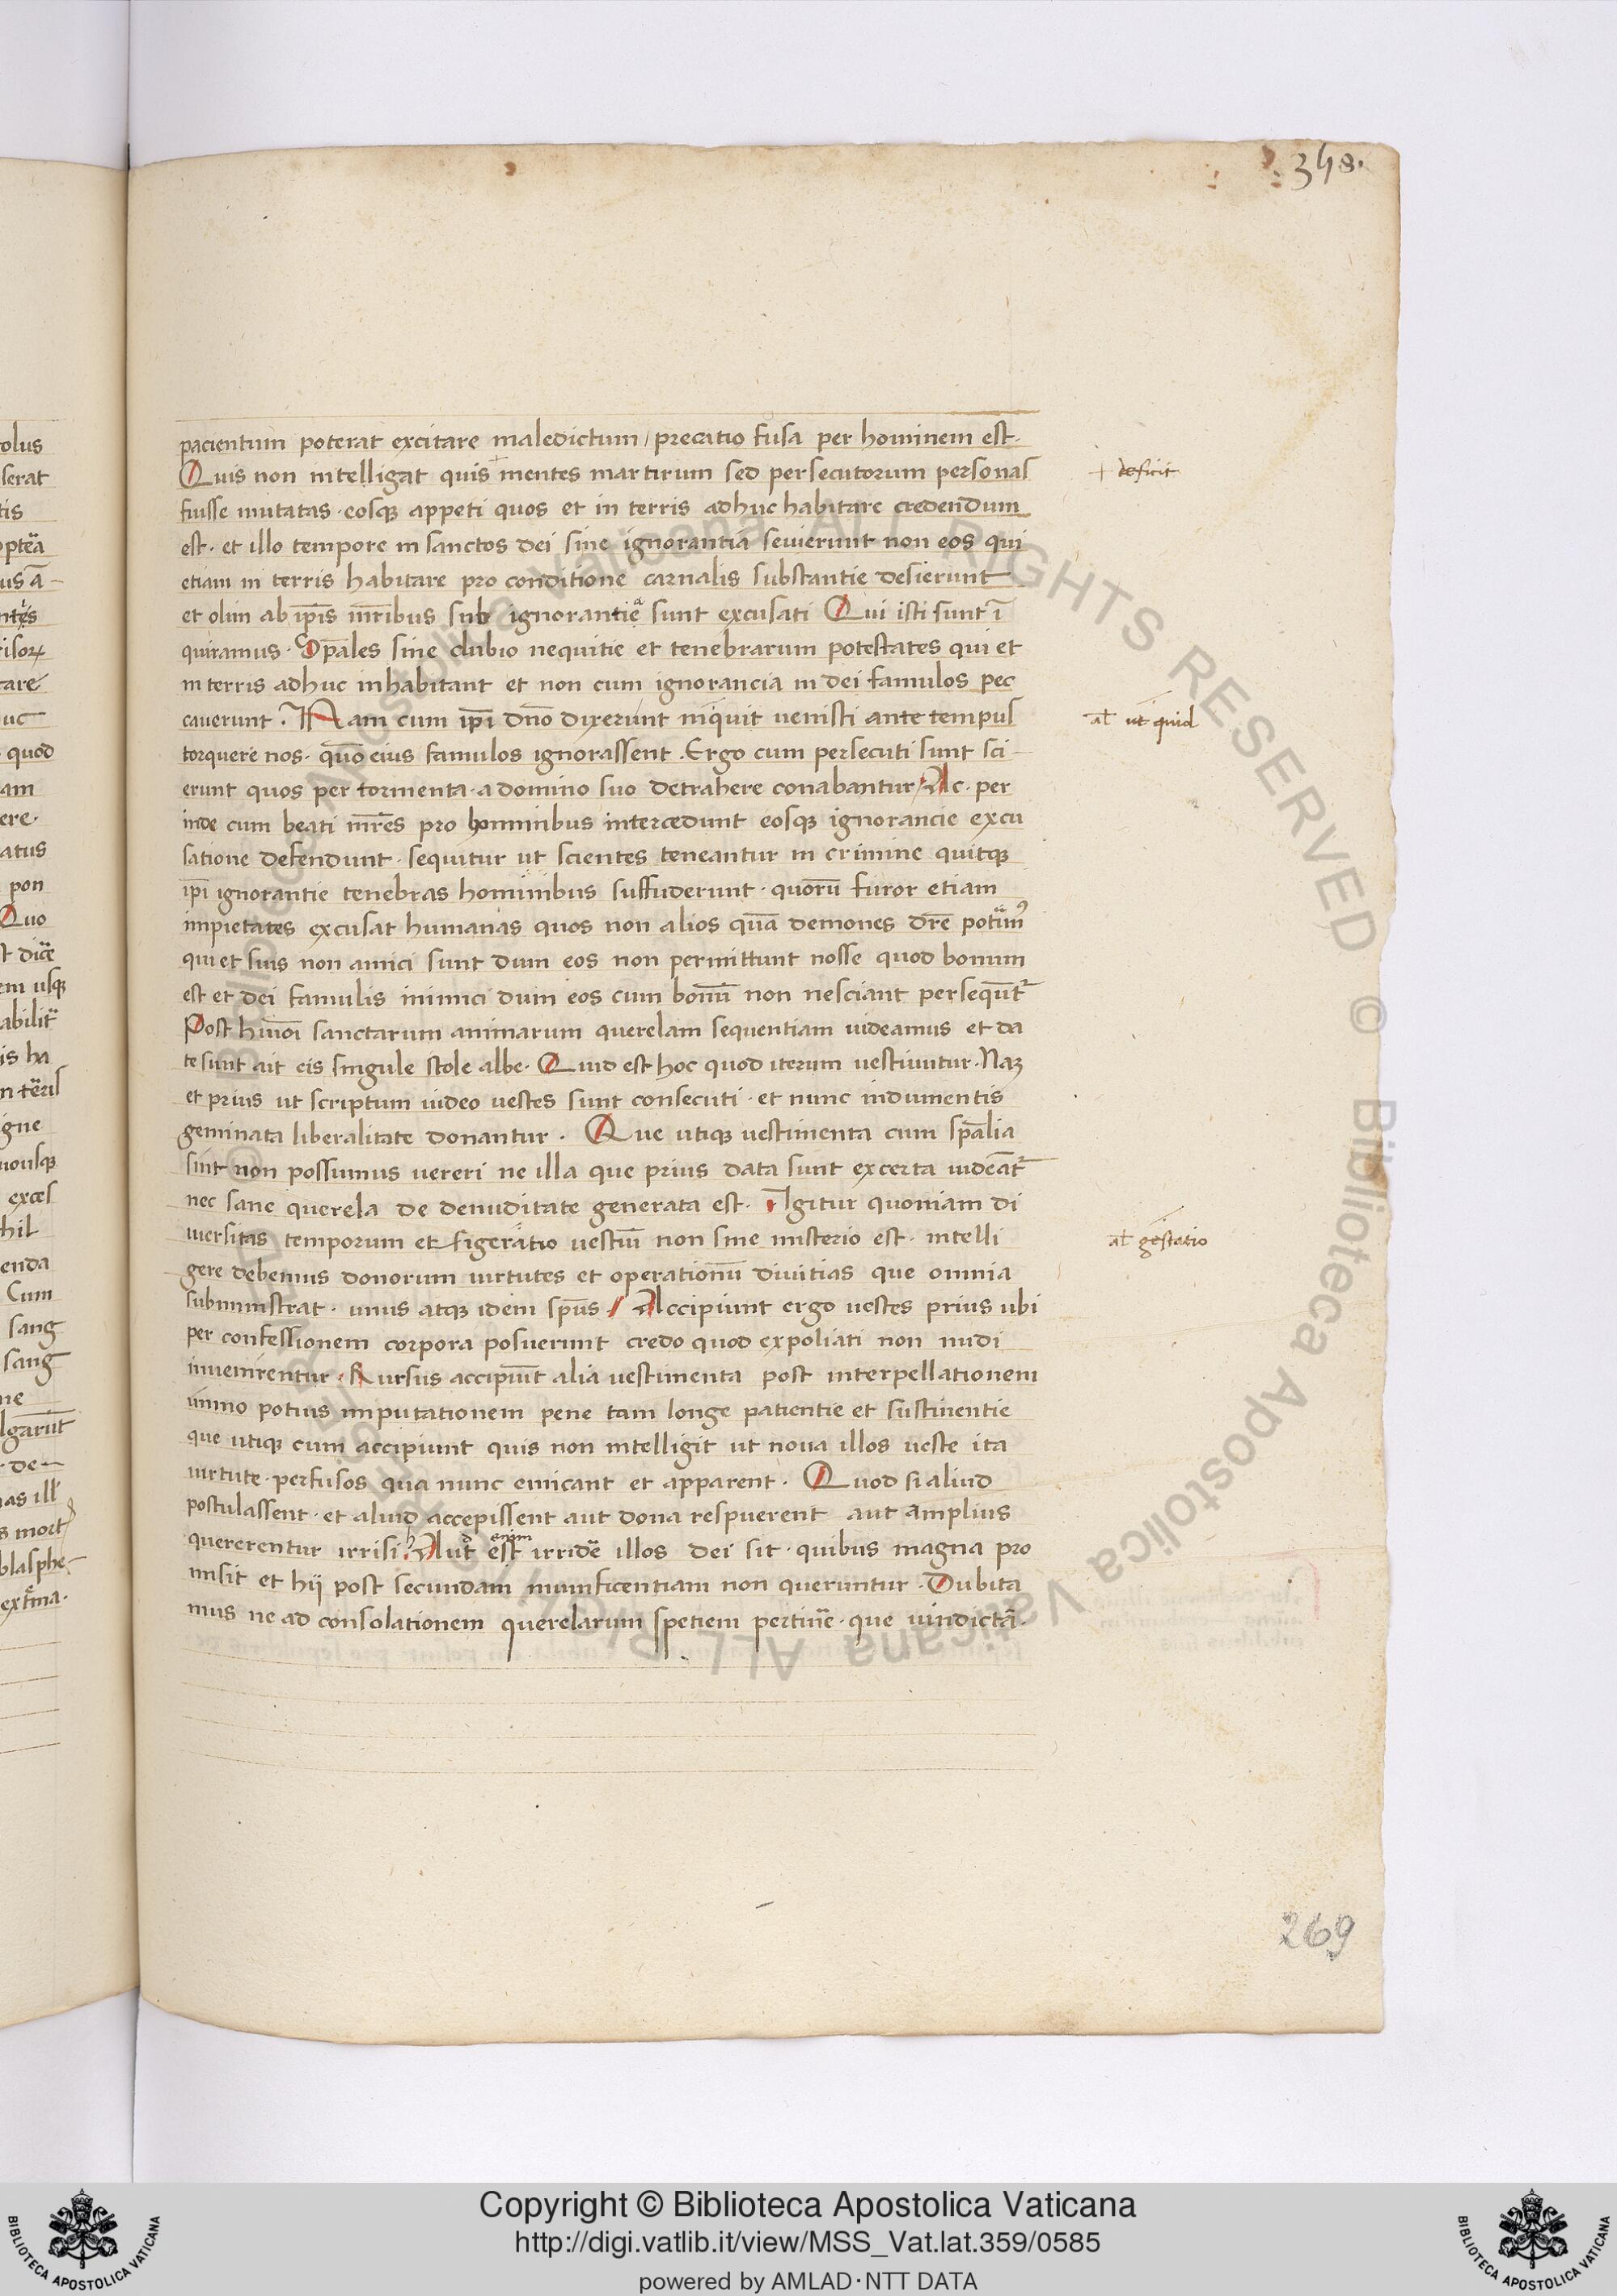 348.
pacientum poterat excitare maledictum / precatio fusa per hominem est.
Quis non intelligat quis + mentes martirum sed persecutorum personas
+ deficit
fuisse mutatas . eosqꝫ appeti quos et in terris adhuc habitare credendum
est . et illo tempore in sanctos dei sine ignorantia seuierunt non eos qui
etiam in terris habitare pro conditione carnalis substantie desierunt
et olim ab ip̄is mr̄ibus sub ignorantieᵃ sunt excusati Qui isti sunt ī
quiramus . Sp̄ales sine dubio nequitie et tenebrarum potestates qui et
in terris adhuc inhabitant et non cum ignorancia in dei famulos pec
cauerunt . Nam cum ip̄i dn̄o dixerunt inquit uenisti ante tempus
al' ut quid
torquere nos . quō eius famulos ignorassent . Ergo cum persecuti sunt sci
erunt quos per tormenta . a domino suo detrahere conabantur Ac . per
inde cum beati mr̄es pro hominibus intercedunt eosqꝫ ignorancie excu
satione defendunt . sequitur ut scientes teneantur in crimine quitqꝫ
ip̄i ignorantie tenebras hominibus suffuderunt . quorū furor etiam
impietates excusat humanas quos non alios quā demones dr̄e potim᷒
qui et suis non amici sunt dum eos non permittunt nosse quod bonum
est et dei famulis inimici dum eos cum bonū non nesciant persequūt᷑
Post huiōi sanctarum animarum querelam sequentiam uideamus et da
te sunt ait eis singule stole albe . Quid est hoc quod iterum uestiuitur . Naꝫ
et prius ut scriptum uideo uestes sunt consecuti . et nunc indumentis
geminata liberalitate donantur . Que utiqꝫ uestimenta cum sp̄alia
sint non possumus uereri ne illa que prius data sunt excerta uideāt᷑
nec sane querela de denuditate generata est . Igitur quoniam di
uersitas temporum et figeratio uestiū non sine misterio est . intelli
al' gestatio
gere debemus donorum uirtutes et operationū diuitias que omnia
subministrat . unus atqꝫ idem sp̄us / Accipiunt ergo uestes prius ubi
per confessionem corpora posuerunt credo quod expoliati non nudi
inuenirentur . Rursus accipiūt alia uestimenta post interpellationem
immo potius imputationem pene tam longe patientie et sustinentie
que utiqꝫ cum accipiunt quis non intelligit ut noua illos ueste ita
uirtute . perfusos qua nunc emicant et apparent . Quod si aliud
postulassent . et aluid accepissent aut dona respuerent aut amplius
quererentur irrisi . enim est irridē illos dei sit . quibus magna pro
misit et hij post secundam munificentiam non queruntur . Dubita
mus ne ad consolationem querelarum spetiem pertinē . que uindictā .
269
Copyright © Biblioteca Apostolica Vaticana
http://digi.vatlib.it/view/MSS_Vat.lat.359/0585
powered by AMLAD·NTT DATA